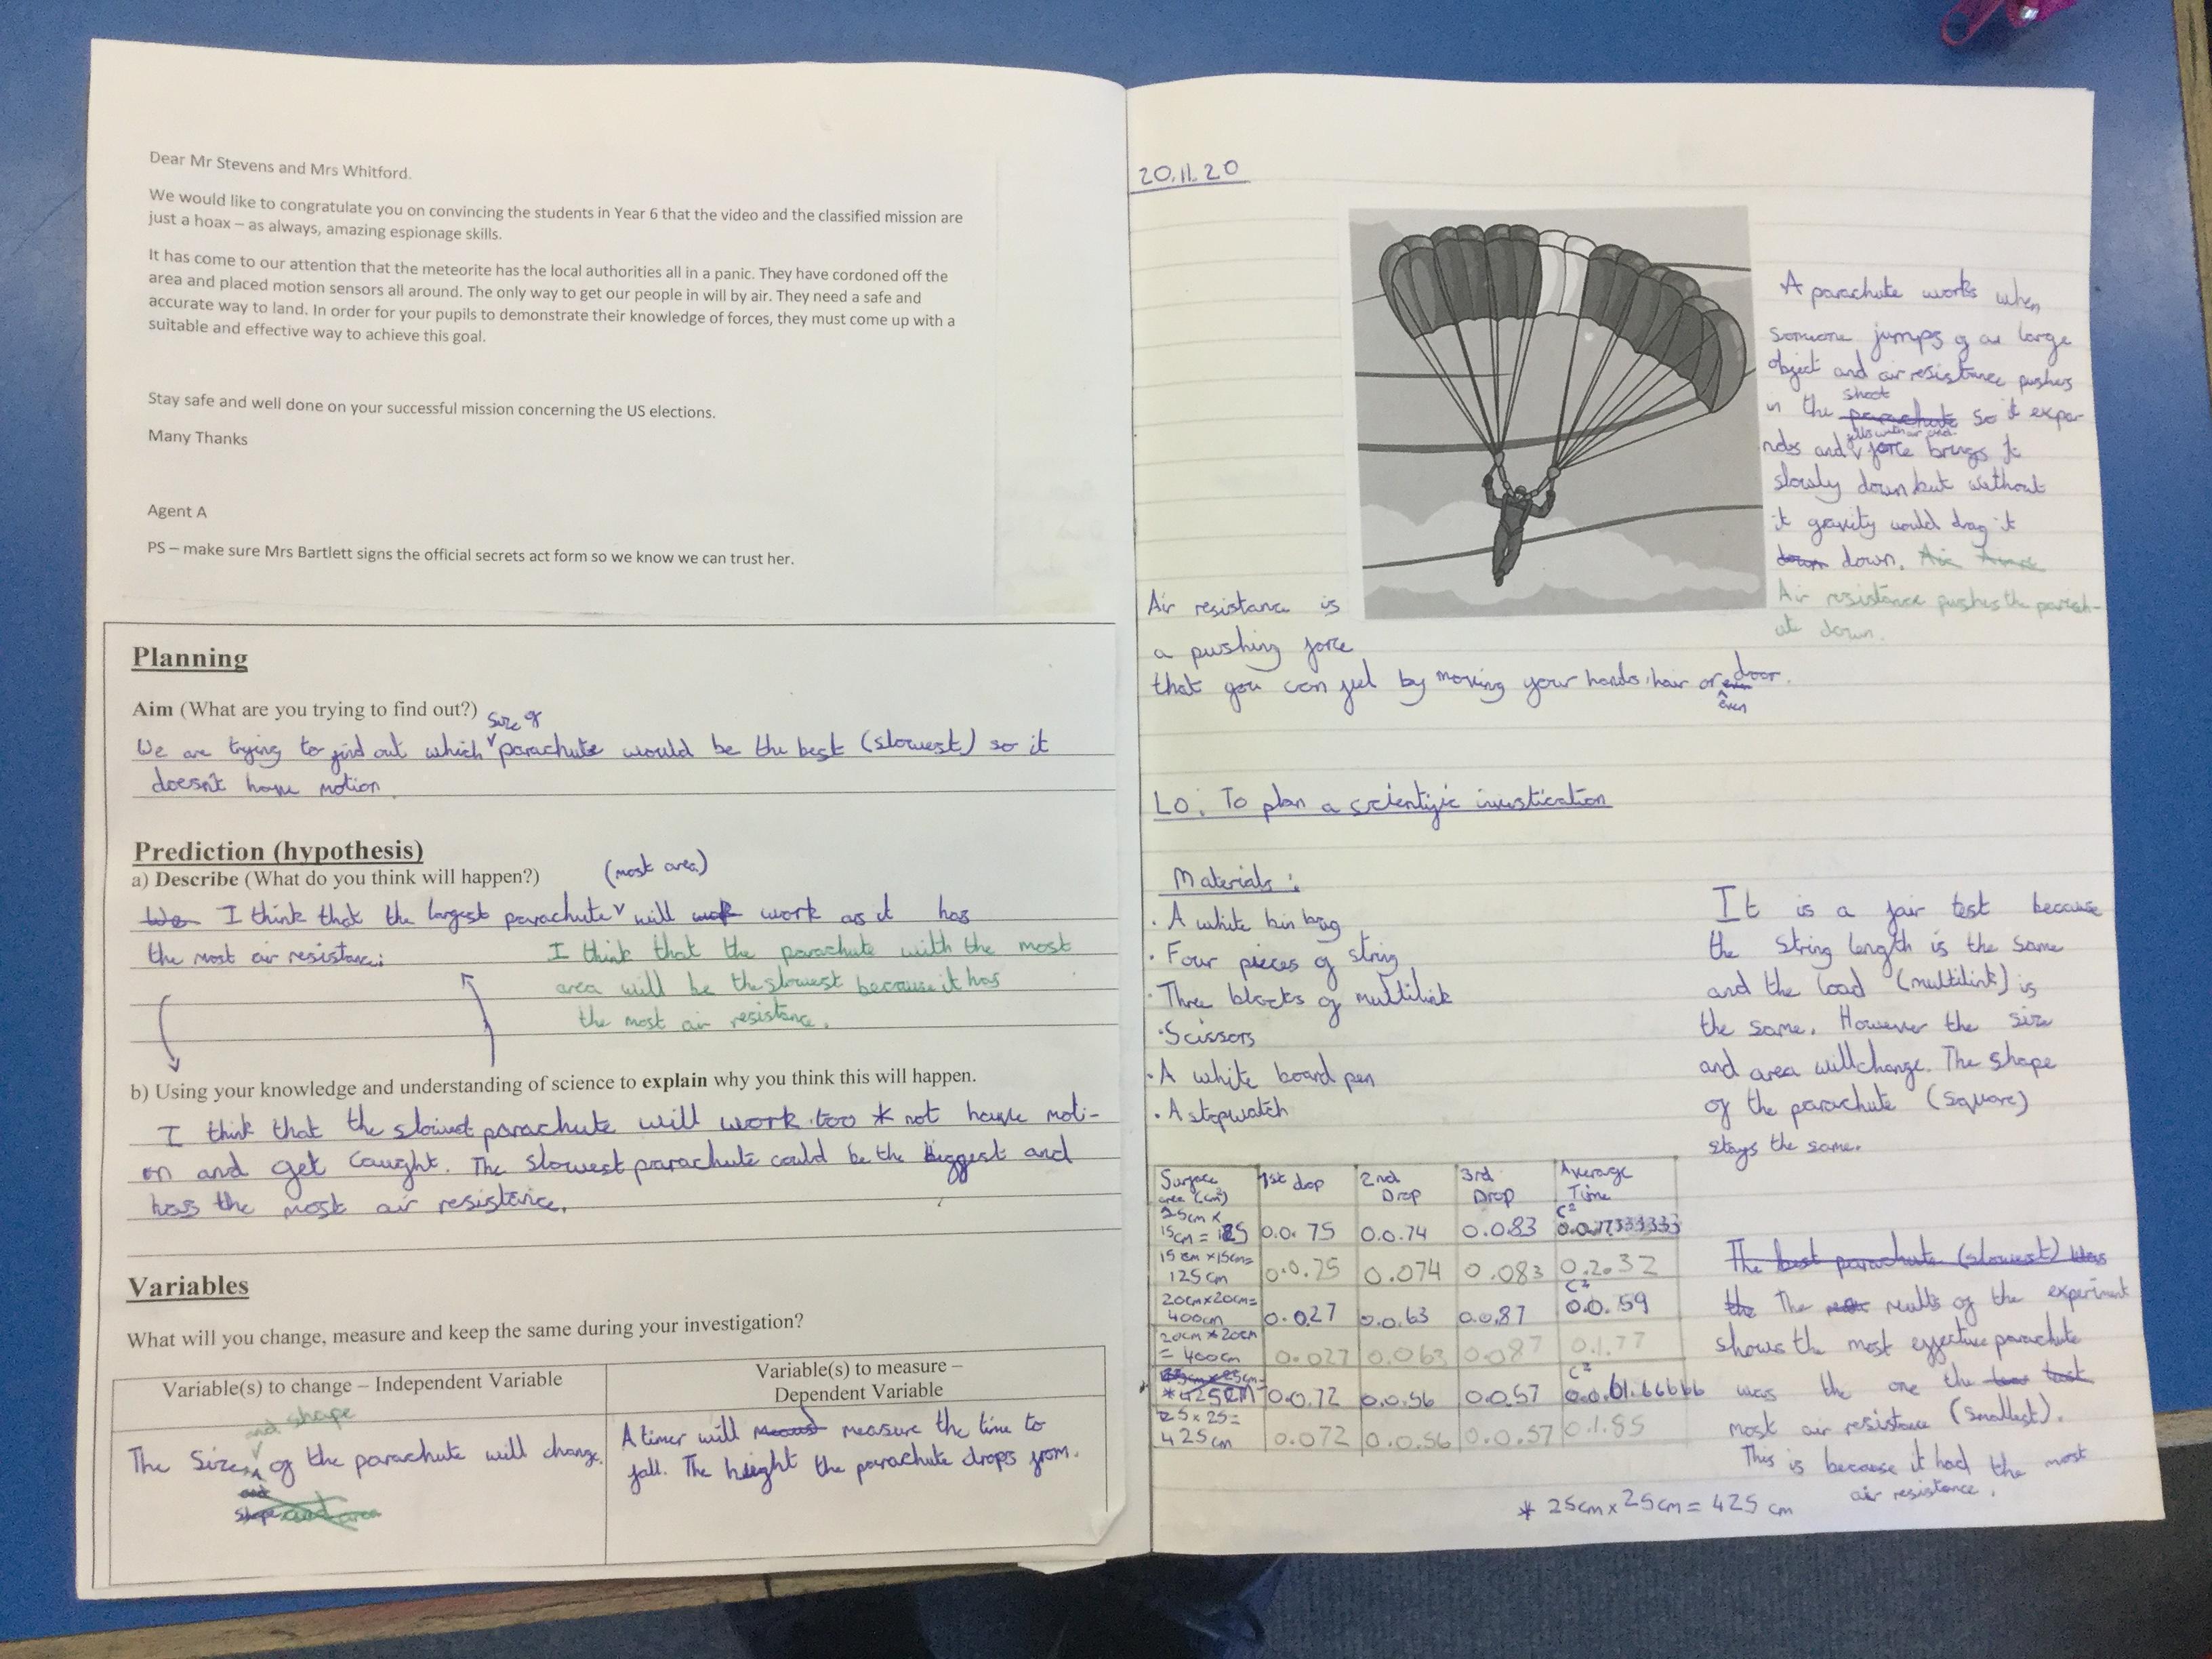 Dear Mr Stevens and Mrs Whitford.
We would like to congratulate you on convincing the students in Year 6 that the video and the classified mission are
just a hoax – as always, amazing espionage skills.
It has come to our attention that the meteorite has the local authorities all in a panic. They have cordoned off the
area and placed motion sensors all around. The only way to get our people in will by air. They need a safe and
accurate way to land. In order for your pupils to demonstrate their knowledge of forces, they must come up with a
suitable and effective way to achieve this goal.
Stay safe and well done on your successful mission concerning the US elections.
Many Thanks
Agent A
PS – make sure Mrs Bartlett signs the official secrets act form so we know we can trust her.
Planning
Aim (What are you trying to find out?)
size of
We are trying to find out which parachute would be the best (slowest) so it
doesn't have motion.
Prediction (hypothesis)
a) Describe (What do you think will happen?)
(most area)
We I think that the largest parachute will work as it has
the most air resistance.
I think that the parachute with the most
area will be the slowest because it has
the most air resistance.
b) Using your knowledge and understanding of science to explain why you think this will happen.
I think that the slowest parachute will work too * not have moti-
on and get caught. The slowest parachute could be the biggest and
has the most air resistance.
Variables
What will you change, measure and keep the same during your investigation?
Variable(s) to change – Independent Variable
Variable(s) to measure –
Dependent Variable
and shape
The size of the parachute will change.
and
shape and area
A timer will measure the time to
fall. The height the parachute drops from.
20.11.20
A parachute works when
someone jumps of a large
object and air resistance pushers
shoot
in the parachute so it expa-
fills with air and
nds and force brings it
slowly down but without
it gravity would drag it
down down. Air
Air resistance pushes the parach-
ute down.
Air resistance is
a pushing force
that you can feel by moving your hands, hair or even door.
even
LO: To plan a scientific investication
Materials:
· A white bin bag
· Four pieces of string
· Three blocks of multilink
· Scissors
· A white board pen
· A stopwatch
It is a fair test because
the string length is the same
and the load (multilink) is
the same. However the size
and area will change. The shape
of the parachute (square)
stays the same.
Surface area (cm²) 1st drop 2nd Drop 3rd Drop Average Time
15cm = 125 0.0.75 0.0.74 0.0.83
15cm x 15cm = 125cm 0.0.75 0.074 0.083 0.2.32
20cm x 20cm = 400cm 0.027 0.0.63 0.0.87 0.0.59
20cm x 20cm = 400cm 0.027 0.063 0.087 0.1.77
* 425cm 0.0.72 0.0.56 0.0.57
25 x 25 = 425cm 0.072 0.0.56 0.0.57 0.1.85
The best parachute (slowest) was
the The results of the experiment
shows the most effective parachute
was the one the
most air resistance (smallest).
This is because it had the most
air resistance.
* 25cm x 25cm = 425 cm